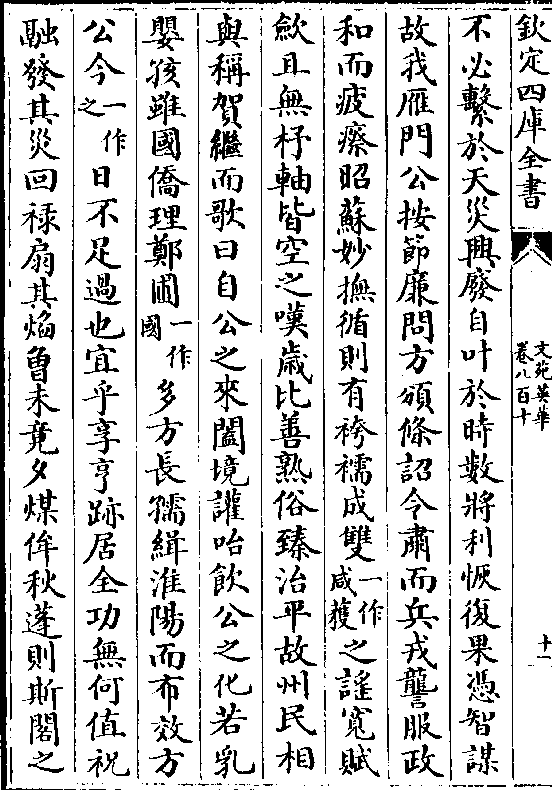 欽定四庫全書
文苑英華
卷八百十
十一
不必繫於天災興廢自叶於時數將利恢復果憑智謀
故我雁門公按節廉問方頒條詔令肅而兵戎讋服政
和而疲瘵昭蘇妙撫循則有袴襦成雙一作咸獲之謡寛賦
歛且無杼軸皆空之嘆歲比善熟俗臻治平故州民相
與稱賀繼而歌曰自公之來闔境讙咍飲公之化若乳
嬰孩雖國僑理鄭圃一作國多方長孺緝淮陽而布效方
公今一作之日不足過也宜乎享亨跡居全功無何值祝
融發其災回禄扇其焰曾未竟夕煤侔秋蓬則斯閣之